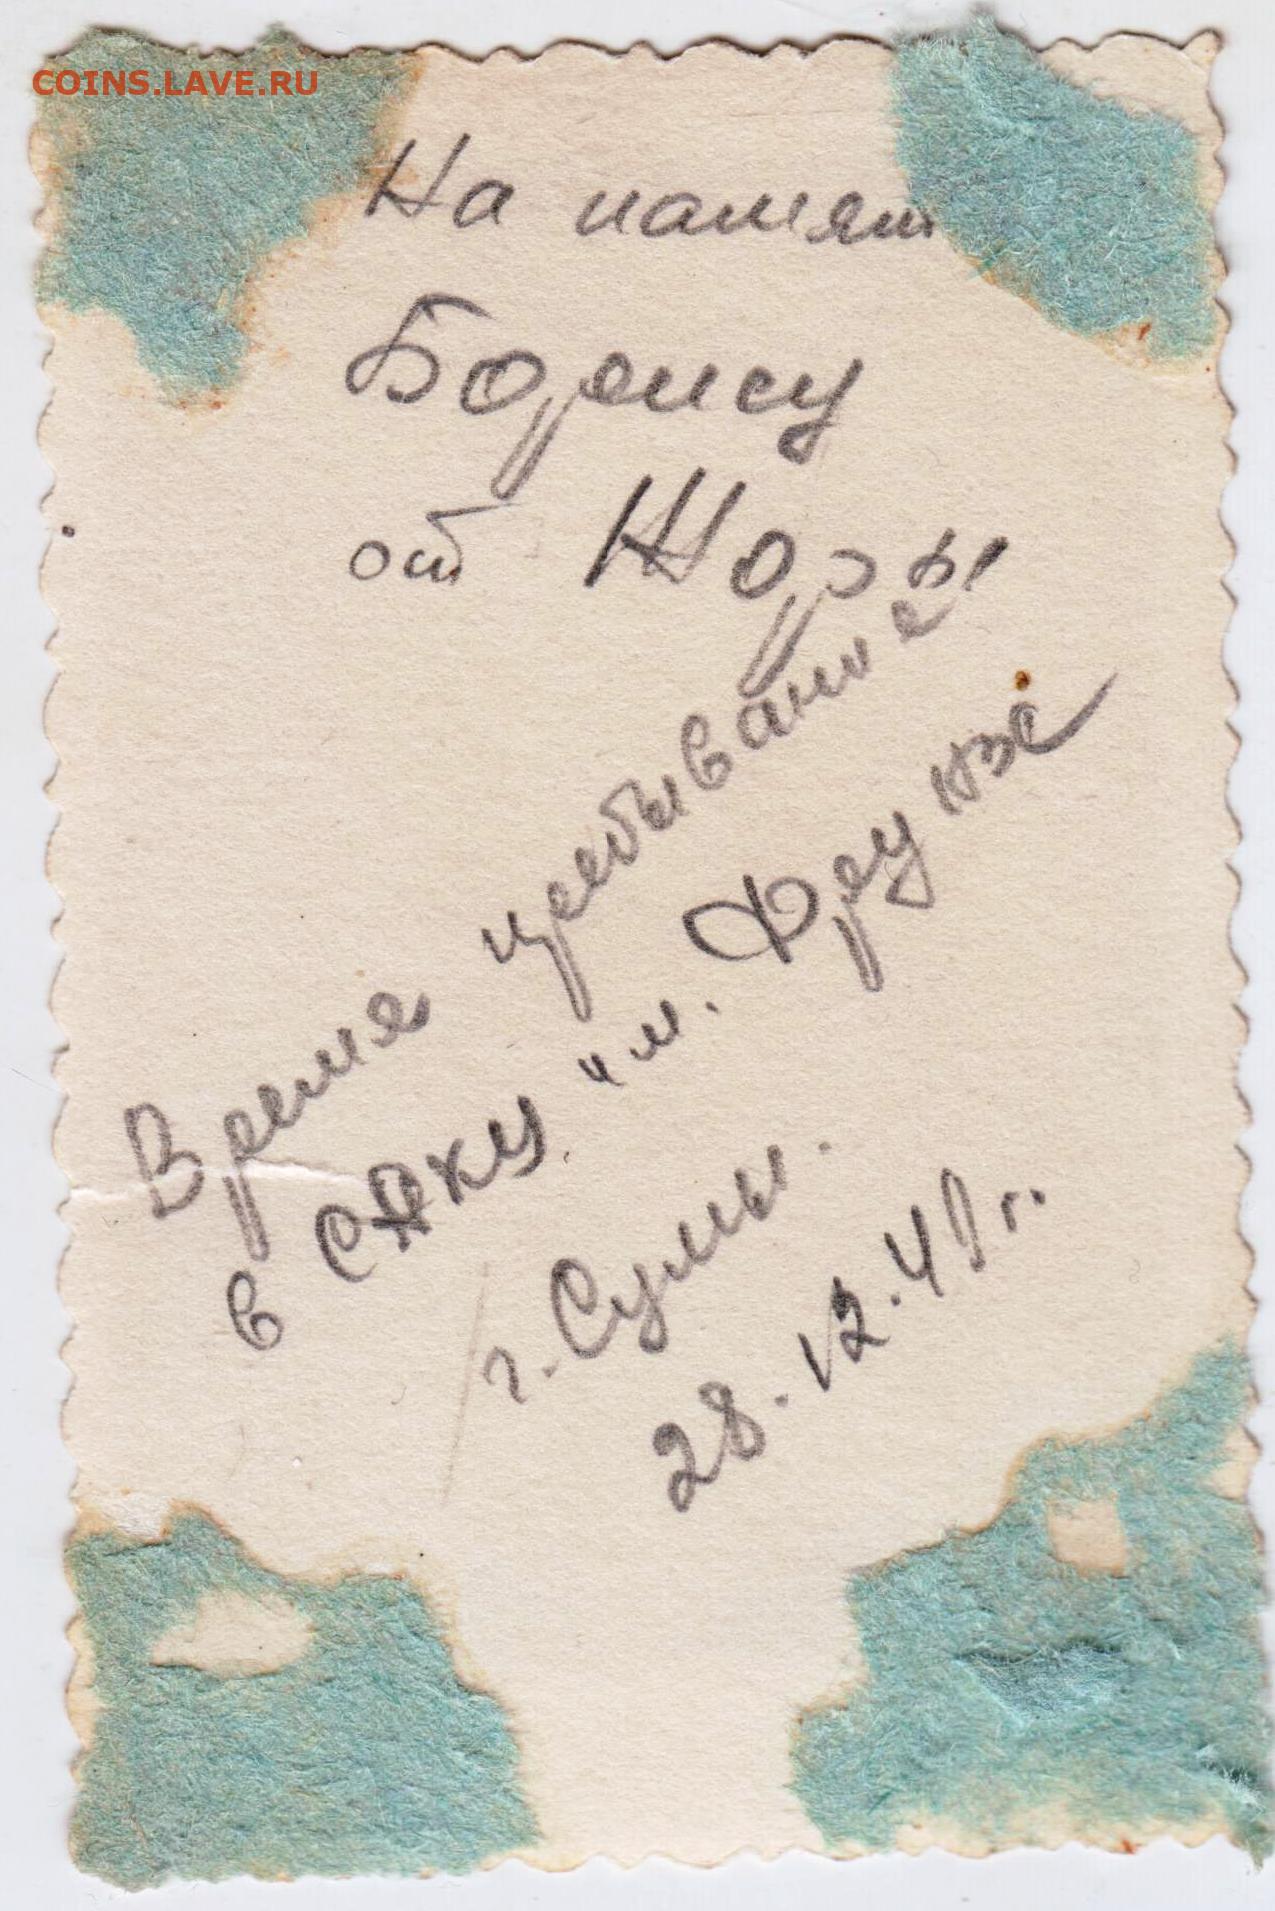 COINS.LAVE.RU
На памят
Борису
от Жоры
Время пребывание
в САКУ им. Фрунзе
г. Сумы.
28.12.41 г.